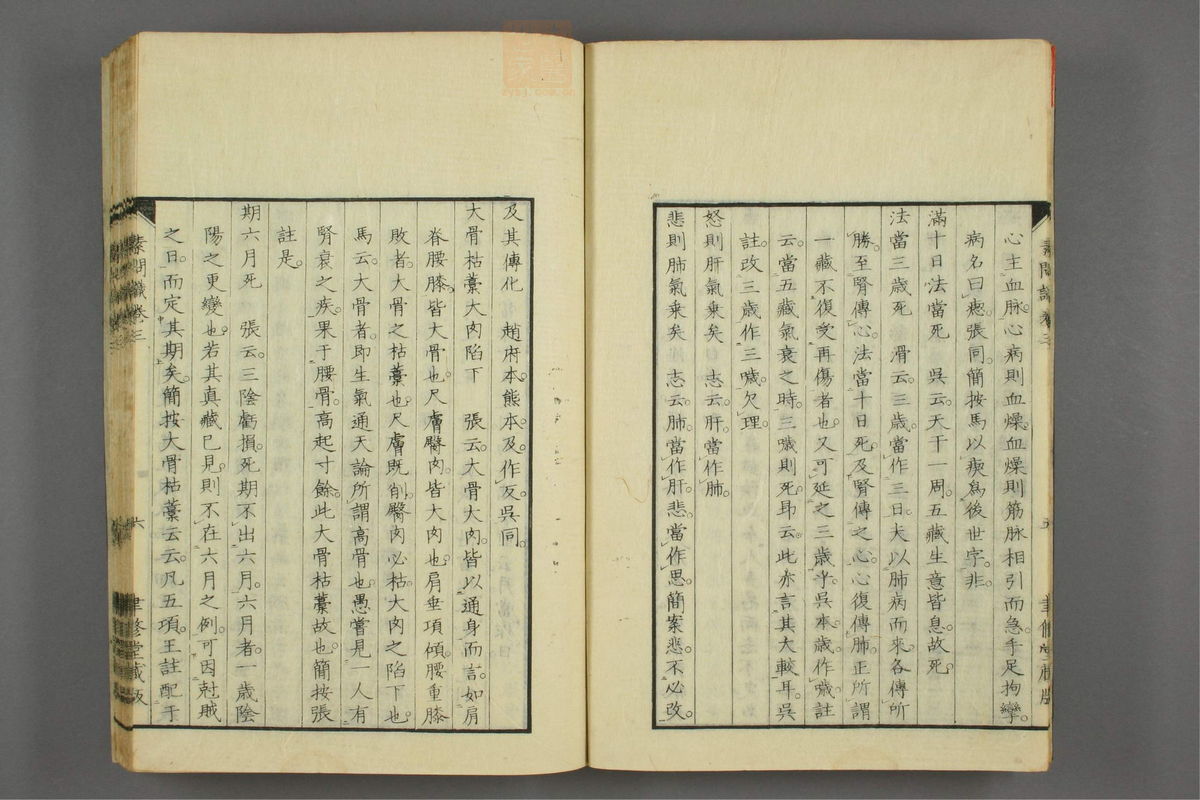 心主血脉。心病則血燥。血燥則筋脉相引而急。手足拘攣。
病名曰瘛。張同。簡按馬以瘈爲後世字。非。
滿十日法當死　吳云。天干一周。五藏生意皆息。故死。
法當三歲死　滑云。三歲。當作三日。夫以肺病而來。各傳所
勝。至腎傳心。法當十日死。及腎傳之心。心復傳肺。正所謂
一藏不復受再傷者也。又可延之三歲乎。吳本。歲作噦。註
云。當五藏氣衰之時。三噦則死。馬云。此亦言其大較耳。吳
註。改三歲作三噦。欠理。
怒則肝氣乘矣　志云。肝當作肺。
悲則肺氣乘矣　志云。肺。當作肝。悲。當作思。簡案悲不必改。
及其傳化　趙府本。熊本。及。作反。吳同。
大骨枯藁大肉陷下　張云。大骨大肉。皆以通身而言。如肩
脊腰膝。皆大骨也。尺膚臀肉。皆大肉也。肩垂項傾。腰重膝
敗者。大骨之枯藁也。尺膚既削。臀肉必枯。大肉之陷下也。
馬云。大骨者。即生氣通天論所謂高骨也。愚嘗見一人有
腎衰之疾。果于腰骨高起寸餘。此大骨枯藁故也。簡按張
註是。
期六月死　張云。三陰虧損。死期不出六月。六月者。一歲陰
陽之更變也。若其真藏已見。則不在六月之例。可因尅賊
之日。而定其期矣。簡按大骨枯藁云云。凡五項。王註配于
素問識卷三
六
聿修堂藏版